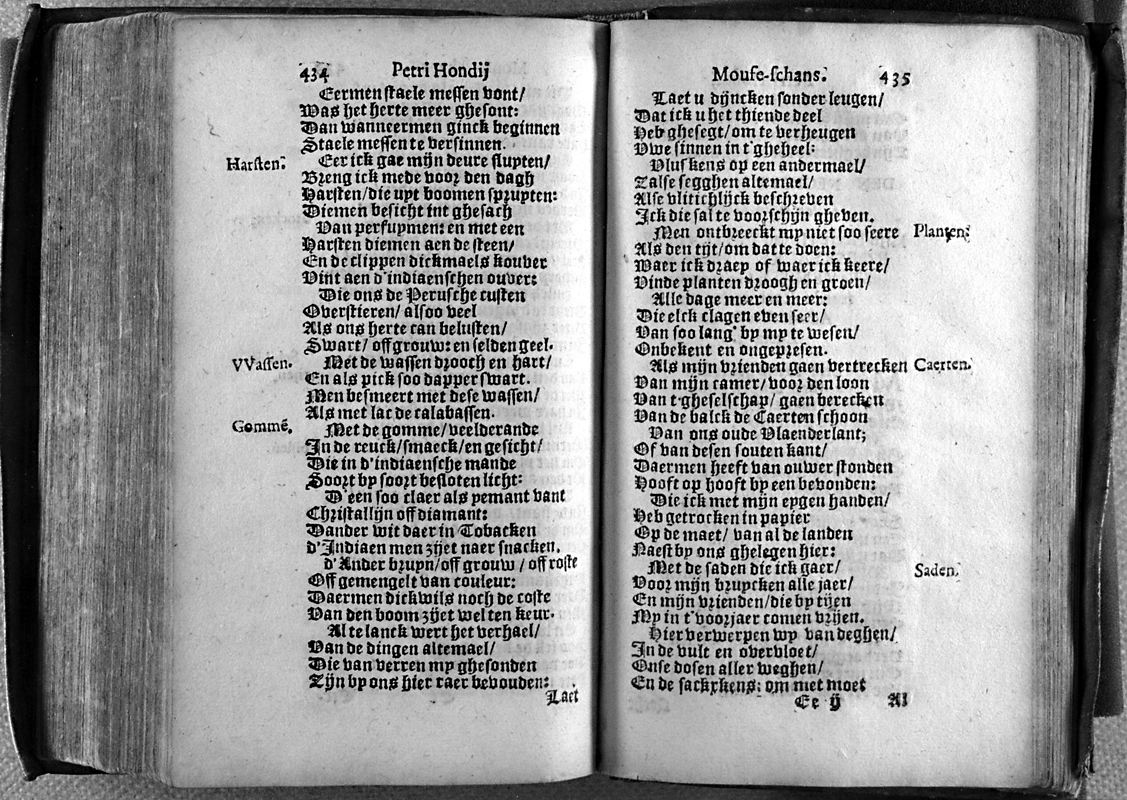 434 Petri Hondij
Eermen staele messen vont/
Was het herte meer ghesont:
Dan wanneermen ginck beginnen
Staele messen te versinnen.
Harsten. Eer ick gae mijn deure sluyten/
Breng ick mede voor den dagh
Harsten/die uyt boomen spruyten:
Diemen besicht int ghesach
Van perfuymen: en met een
Harsten diemen aen de steen/
En de clippen dickmaels kouver
Vint aen d'indiaenschen ouver:
Die ons de Perusche custen
Overstieren/ alsoo veel
Als ons herte can belusten/
Swart/ off grouw: en selden geel.
VVassen. Met de wassen drooch en hart/
En als pick soo dapper swart.
Men besmeert met dese wassen/
Als met lac de calabassen.
Gommē. Met de gomme/veelderande
In de reuck/smaeck/en gesicht/
Die in d'indiaensche mande
Soort by soort besloten licht:
D'een soo claer als yemant vant
Christallijn off diamant:
Dander wit daer in Tobacken
d'Indiaen men zijet naer snacken.
d'Ander bruyn/off grouw/ off roste
Off gemengelt van couleur:
Daermen dickwils noch de coste
Van den boom zijet wel ten keur.
Al te lanck wert het verhael/
Van de dingen altemael/
Die van verren my ghesonden
Zijn by ons hier raer bevouden:
Laet
Mouse-schans. 435
Laet u dijncken sonder leugen/
Dat ick u het thiende deel
Heb ghesegt/om te verheugen
Vwe sinnen in t'gheheel:
Vlus kens op een andermael/
Zalse segghen altemael/
Alse vlitichlijck beschreven
Ick die sal te voorschijn gheven.
Men ontbreeckt my niet soo seere Planten:
Als den tijt/om dat te doen:
Waer ick draey of waer ick keere/
Vinde planten droogh en groen/
Alle dage meer en meer:
Die elck clagen even seer/
Van soo lang' by my te wesen/
Onbekent en ongepresen.
Als mijn vrienden gaen vertrecken Caerten.
Van mijn camer/ voor den loon
Van t'gheselschap/ gaen berecken
Van de balck de Caerten schoon
Van ons oude Vlaenderlant;
Of van desen souten kant/
Daermen heeft van ouwer stonden
Hooft op hooft by een bevonden:
Die ick met mijn eygen handen/
Heb getrocken in papier
Op de maet/ van al de landen
Naest by ons ghelegen hier:
Met de saden die ick gaer/ Saden.
Voor mijn bruycken alle jaer/
En mijn vrienden/die by tijen
My in t'voorjaer comen vrijen.
Hier verwerpen wy van deghen/
In de vult en overvloet/
Onse dosen aller weghen/
En de sackxkens; om met moet
Ee ij Al